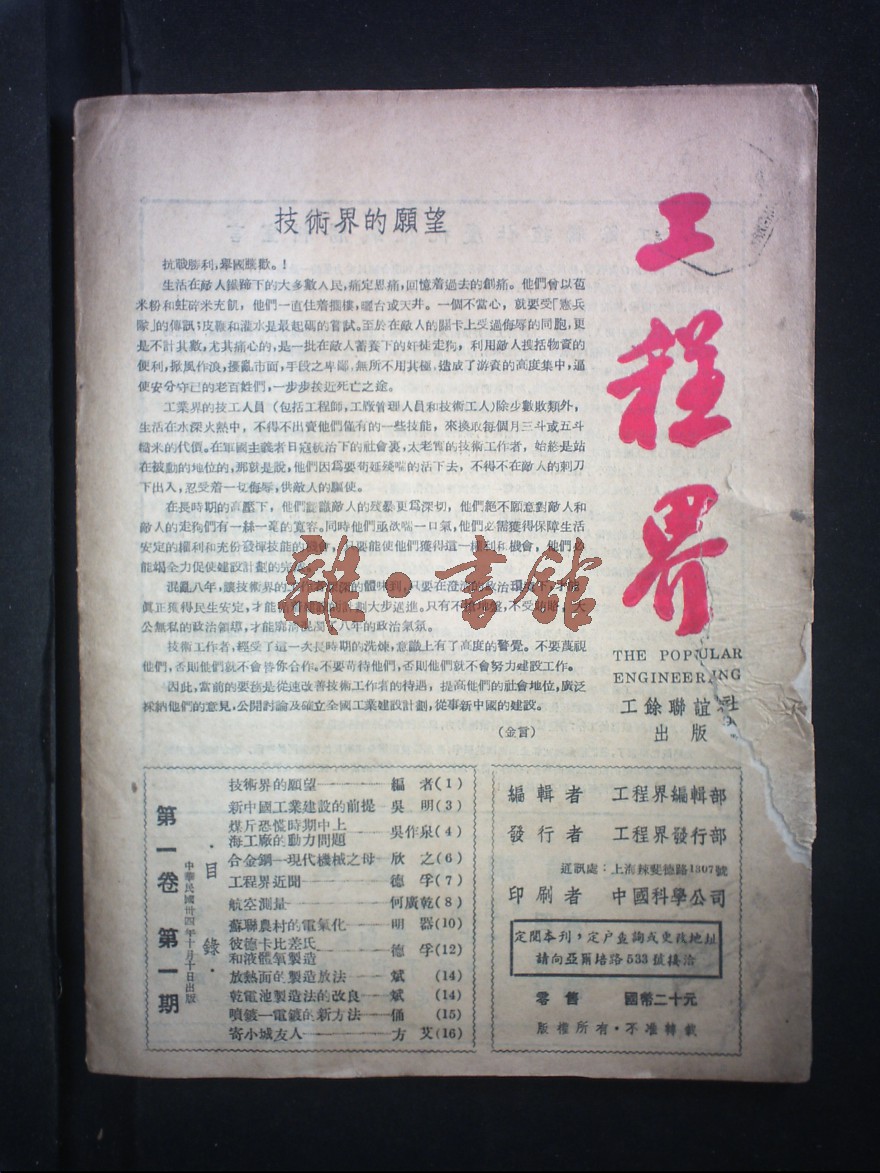 工程界
THE POPULAR
ENGINEERING
工餘聯誼社
出版
技術界的願望
抗戰勝利,舉國騰歡。!
生活在敵人鐵蹄下的大多數人民,痛定思痛,回憶着過去的創痛。他們曾以苞
米粉和蛀碎米充飢,他們一直住着擱樓,曬台或天井。一個不當心,就要受「憲兵
隊」的傳訊;皮鞭和灌水是最起碼的嘗試。至於在敵人的關卡上受過侮辱的同胞,更
是不計其數,尤其痛心的,是一批在敵人蓄養下的奸徒走狗,利用敵人搜括物資的
便利,掀風作浪,擾亂市面,手段之卑鄙,無所不用其極,造成了游資的高度集中,逼
使安分守己的老百姓們,一步步接近死亡之途。
工業界的技工人員(包括工程師,工廠管理人員和技術工人)除少數敗類外,
生活在水深火熱中,不得不出賣他們僅有的一些技能,來換取每個月三斗或五斗
糙米的代價。在軍國主義者日寇統治下的社會裏,太老實的技術工作者,始終是站
在被動的地位的,那就是說,他們因爲要苟延殘喘的活下去,不得不在敵人的刺刀
下出入,忍受着一切侮辱,供敵人的驅使。
在長時期的高壓下,他們認識敵人的殘暴更爲深切,他們絕不願意對敵人和
敵人的走狗們有一絲一毫的寬容。同時他們亟欲喘一口氣,他們必需獲得保障生活
安定的權利和充份發揮技能的機會,只要能使他們獲得這一權利和機會,他們必
能竭全力促使建設計劃的完
混亂八年,讓技術界的工作者深深的體味到,只要在澄清的政治環境下,才能
眞正獲得民生安定,才能 計劃大步邁進。只有不 ,不受賄賂,大
公無私的政治領導,才能廓清混濁了八年的政治氣氛。
技術工作者,經受了這一次長時期的洗煉,意識上有了高度的警覺。不要蔑視
他們,否則他們就不會替你合作。不要苛待他們,否則他們就不會努力建設工作。
因此,當前的要務是從速改善技術工作者的待遇,提高他們的社會地位,廣泛
採納他們的意見,公開討論及確立全國工業建設計劃,從事新中國的建設。
(金言)
第一卷 第一期
中華民國卅四年十月十日出版
·目錄·
技術界的願望——編者(1)
新中國工業建設的前提—吳明(3)
煤斤恐慌時期中上
海工廠的動力問題——吳作泉(4)
合金鋼—現代機械之母—欣之(6)
工程界近聞——德孚(7)
航空測量——何廣乾(8)
蘇聯農村的電氣化——明器(10)
彼德卡比差氏
和液體氧製造——德孚(12)
放熱面的製造放法—斌(14)
乾電池製造法的改良—斌(14)
噴鍍—電鍍的新方法—俑(15)
寄小城友人——方艾(16)
編輯者 工程界編輯部
發行者 工程界發行部
通訊處:上海辣斐德路1307號
印刷者 中國科學公司
定閱本刊,定户查詢或更改地址
請向亞爾培路533號接洽
零售 國幣二十元
版權所有·不准轉載
雜·書館